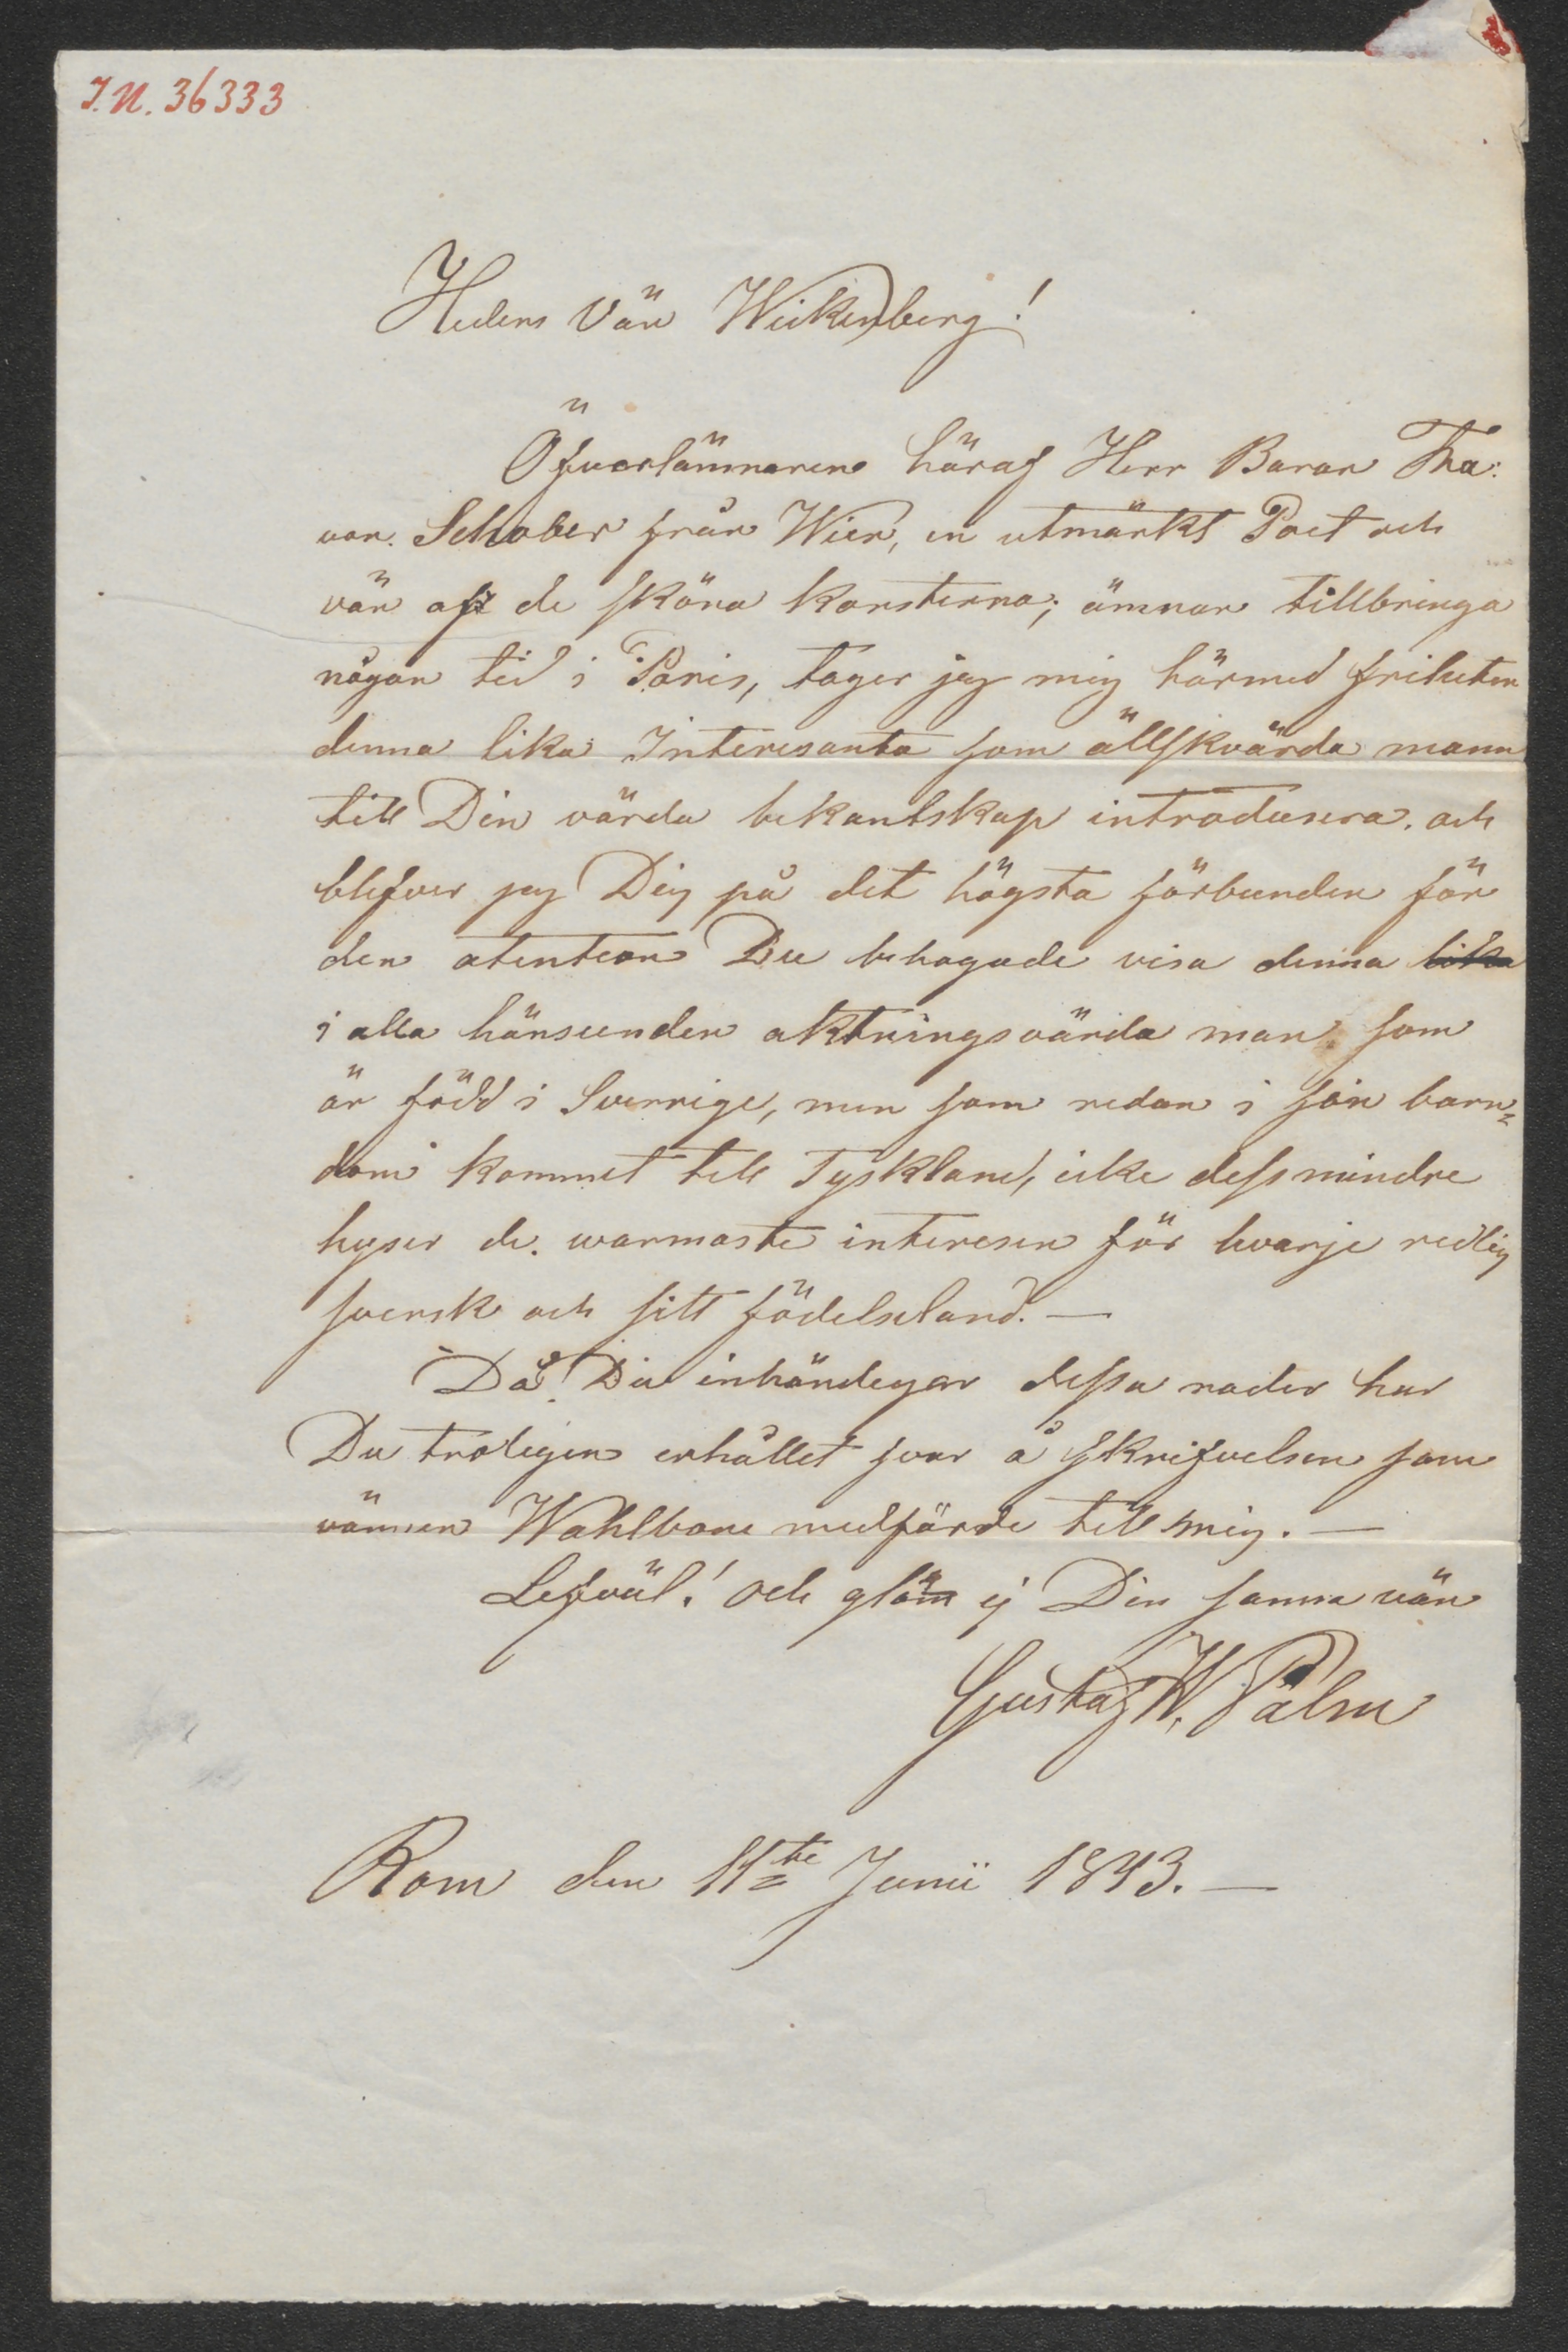 I.N. 36333
Heders Vän Wickenberg!
Öfverlämnaren häraf Herr Baron Fra:
von. Schober från Wien, en utmärkt Poet och
vän af de sköna konsterna; ämnar tillbringa
någon tid i Paris, tager jag mig härmed friheten
denna lika Interesanta som älskvärda mann
till Din värda bekantskap introdusera. och
blefver jag Dig på det högsta förbunden för
den atention Du behagade visa denna lika
i alla hänseenden aktningsvärda man som
är född i Sverrige, men som redan i sin barn=
dom kommet till Tyskland, icke dess mindre
hyser de. warmaste interesen för hvarje redlig
svensk och sitt födelseland. —
Då Du inhändegar dessa rader har
Du troligen erhållet svar å skrifvelsen som
vännen Wahlbom medförde till mig. —
Lefväl! och gläm ej Din sanna vän
Gustaf W. Palm
Rom den 11te Junii 1843. —